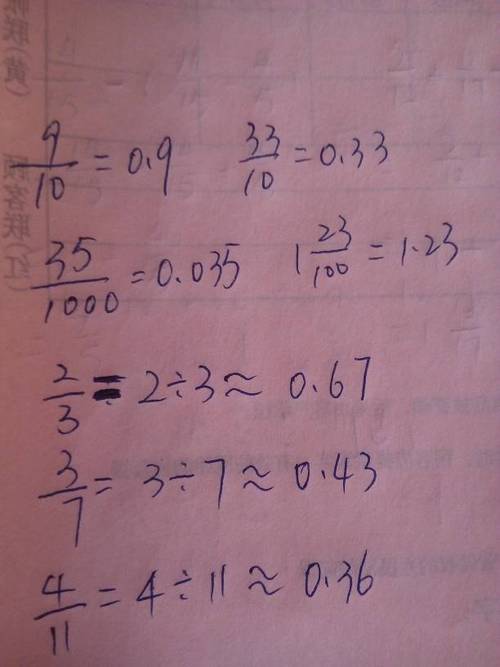 9/10 = 0.9 33/10 = 0.33
35/1000 = 0.035 1 23/100 = 1.23
2/3 = 2÷3≈ 0.67
3/7 = 3÷7≈ 0.43
4/11 = 4÷11≈ 0.36
联(黄)
顾客联(红)